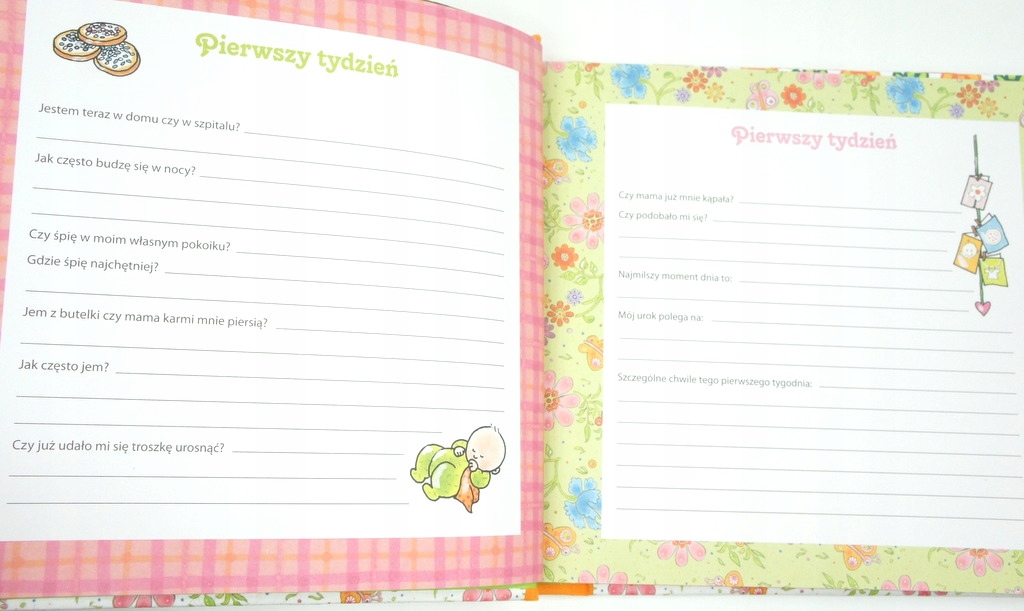 Pierwszy tydzień
Jestem teraz w domu czy w szpitalu?
Jak często budzę się w nocy?
Czy śpię w moim własnym pokoiku?
Gdzie śpię najchętniej?
Jem z butelki czy mama karmi mnie piersią?
Jak często jem?
Czy już udało mi się troszkę urosnąć?
Pierwszy tydzień
Czy mama już mnie kąpała?
Czy podobało mi się?
Najmilszy moment dnia to:
Mój urok polega na:
Szczególne chwile tego pierwszego tygodnia: